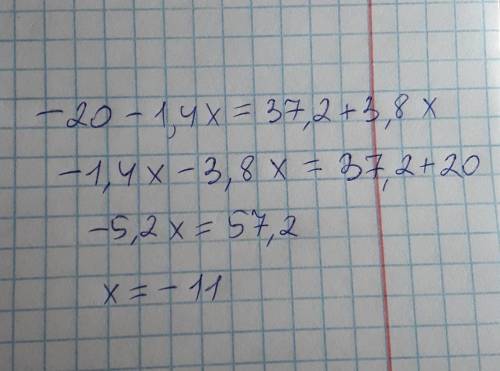 -20 - 1,4x = 37,2 + 3,8x
-1,4x - 3,8x = 37,2 + 20
-5,2x = 57,2
x = -11